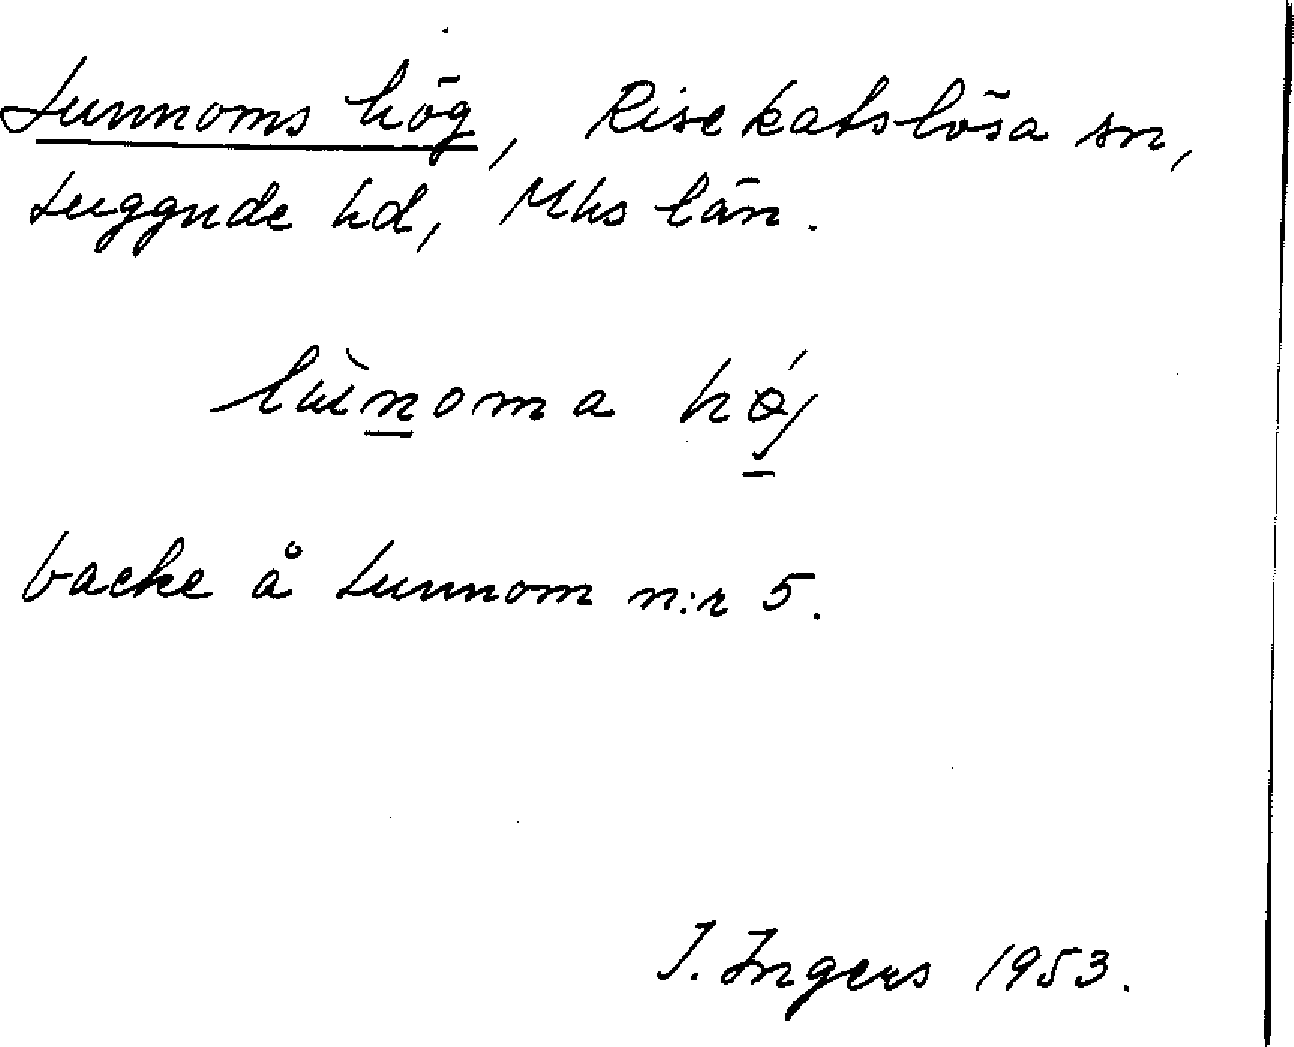 Lunnoms hög, Risekatslösa sn,
Luggude hd, Mhs län.
lùnoma høj
backe å Lunnom n:r 5.
I. Ingers 1953.